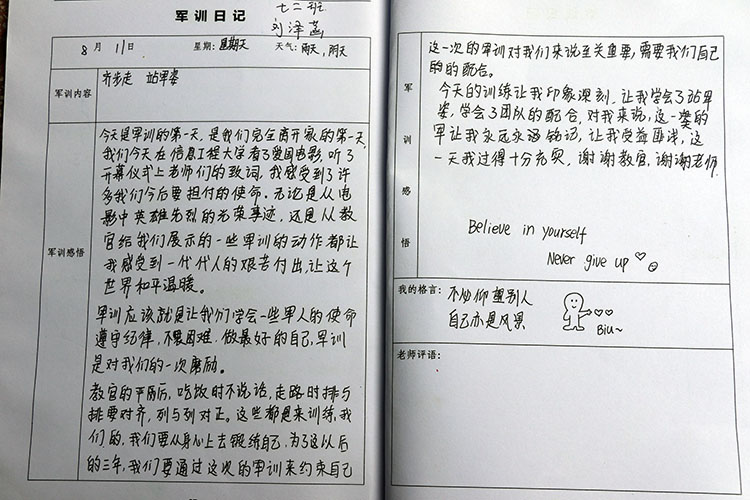 军训日记
七二班
刘泽菡
8月11日
星期:星期天
天气:雨天,阴天
军训内容
齐步走 站军姿
军训感悟
今天是军训的第一天,是我们完全离开家的第一天,
我们今天在信息工程大学看了爱国电影,听了
开幕仪式上老师们的致词,我感受到了许
多我们今后要担付的使命。无论是从电
影中英雄先烈的光荣事迹,还是从教
官给我们展示的一些军训的动作都让
我感受到一代代人的艰苦付出,让这个
世界和平温暖。
军训应该就是让我们学会一些军人的使命
遵守纪律,不畏困难,做最好的自己,军训
是对我们的一次磨励。
教官的严厉,吃饭时不说话,走路时排与
排要对齐,列与列对正。这些都是来训练我
们的,我们要从身心上去锻练自己,为了这以后
的三年,我们要通过这次的军训来约束自己
军训感悟
这一次的军训对我们来说至关重要,需要我们自己
的的配合。
今天的训练让我印象深刻,让我学会了站军
姿,学会了团队的配合,对我来说,这一龚的
军让我永远永涵铭记,让我受益匪浅,这
一天我过得十分充实,谢谢教官,谢谢老师
Believe in yourself
Never give up
我的格言:
不必仰望别人
自己亦是风景
Biu~
老师评语: